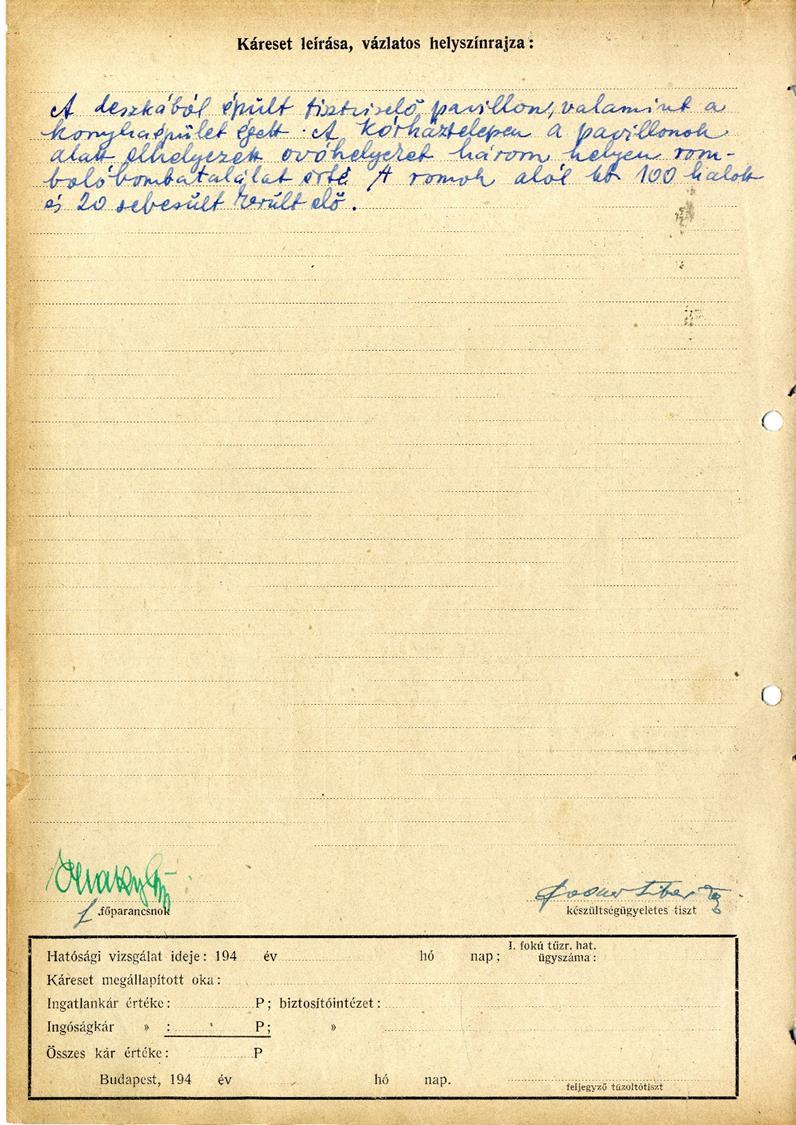 Káreset leírása, vázlatos helyszínrajza:
A deszkából épült tisztviselő pavillon, valamint a
konyhaépület égett. A kórháztelepen a pavillonok
alatt elhelyezett óvóhelyeket három helyen rom-
bolóbombatalálat érte. A romok alól kb 100 halott
és 20 sebesült került elő.
f .főparancsnok
készültségügyeletes tiszt
Hatósági vizsgálat ideje: 194 év hó nap; I. fokú tűzr. hat.
ügyszáma:
Káreset megállapított oka:
Ingatlankár értéke: P; biztosítóintézet:
Ingóságkár » : P; »
Összes kár értéke: P
Budapest, 194 év hó nap.
feljegyző tűzoltótiszt